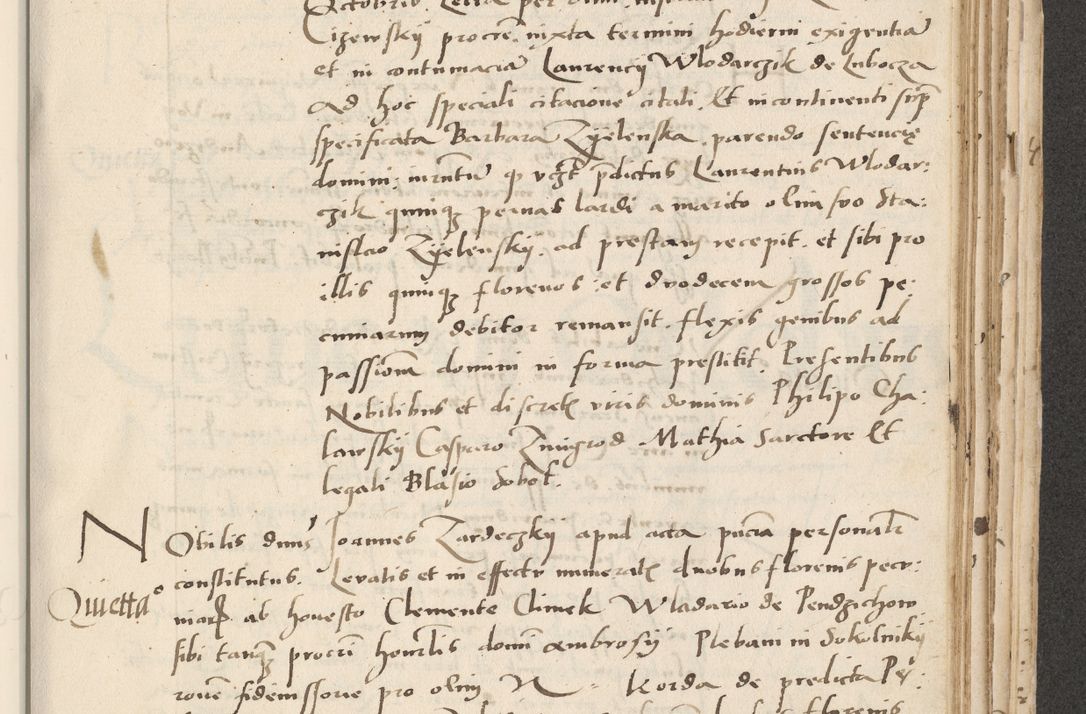 Cizewsky procrem iuxta termini hodierni exigentia
et in contumacia Laurency Wlodarczik de Lubocza
ad hoc speciali citacione citati. Et incontinenti
specificata Barbara Zyelenska. parendo sentencię
domini iurentur q vzt pdictus Laurentius Wlodar:
czik quinqz pernas lardi a marito olim suo Sta:
nislao Zyelensky. ad prestam recepit. et sibi pro
illis quinqz florenos et duodecem grossos pe:
cuniarum debitor remansit. flexis genibus ad
passionem domini in forma prestitit. Presentibus
Nobilibus et discretis viris dominis Philipo Cha:
lawsky Casparo Zmigrod Mathia Sarctore Et
legali Blasio Sobot.
Nobilis dnus Joannes Zardeczky apud acta pntia personalr
constitutus. Levatis et in effectu numeratis duobus florenis pecu:
Quietta°
niarum ab honesto Clemente Climek Wladario de Pendzichow
sibi tanqz procri honrlis domi Ambrosy Plebani in Sokolniky
rone fideiussorie pro olim N Korda de predicta Pe
florenis